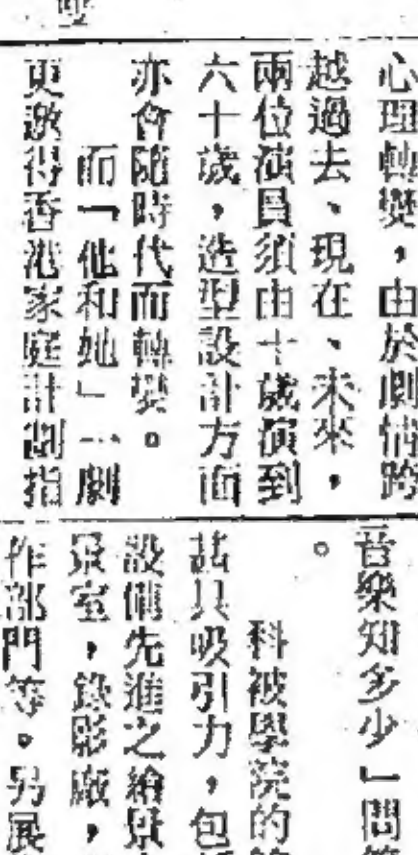 心理轉變，由於劇情跨
越過去、現在、未來，
兩位演員須由十歲演到
六十歲，造型設計方面
亦會隨時代而轉變。
而「他和她」一劇
更邀得香港家庭計劃指
音樂知多少」問
。
科技學院的
甚具吸引力，包
設備先進之繪景
景室，錄影廠，
作部門等。另展